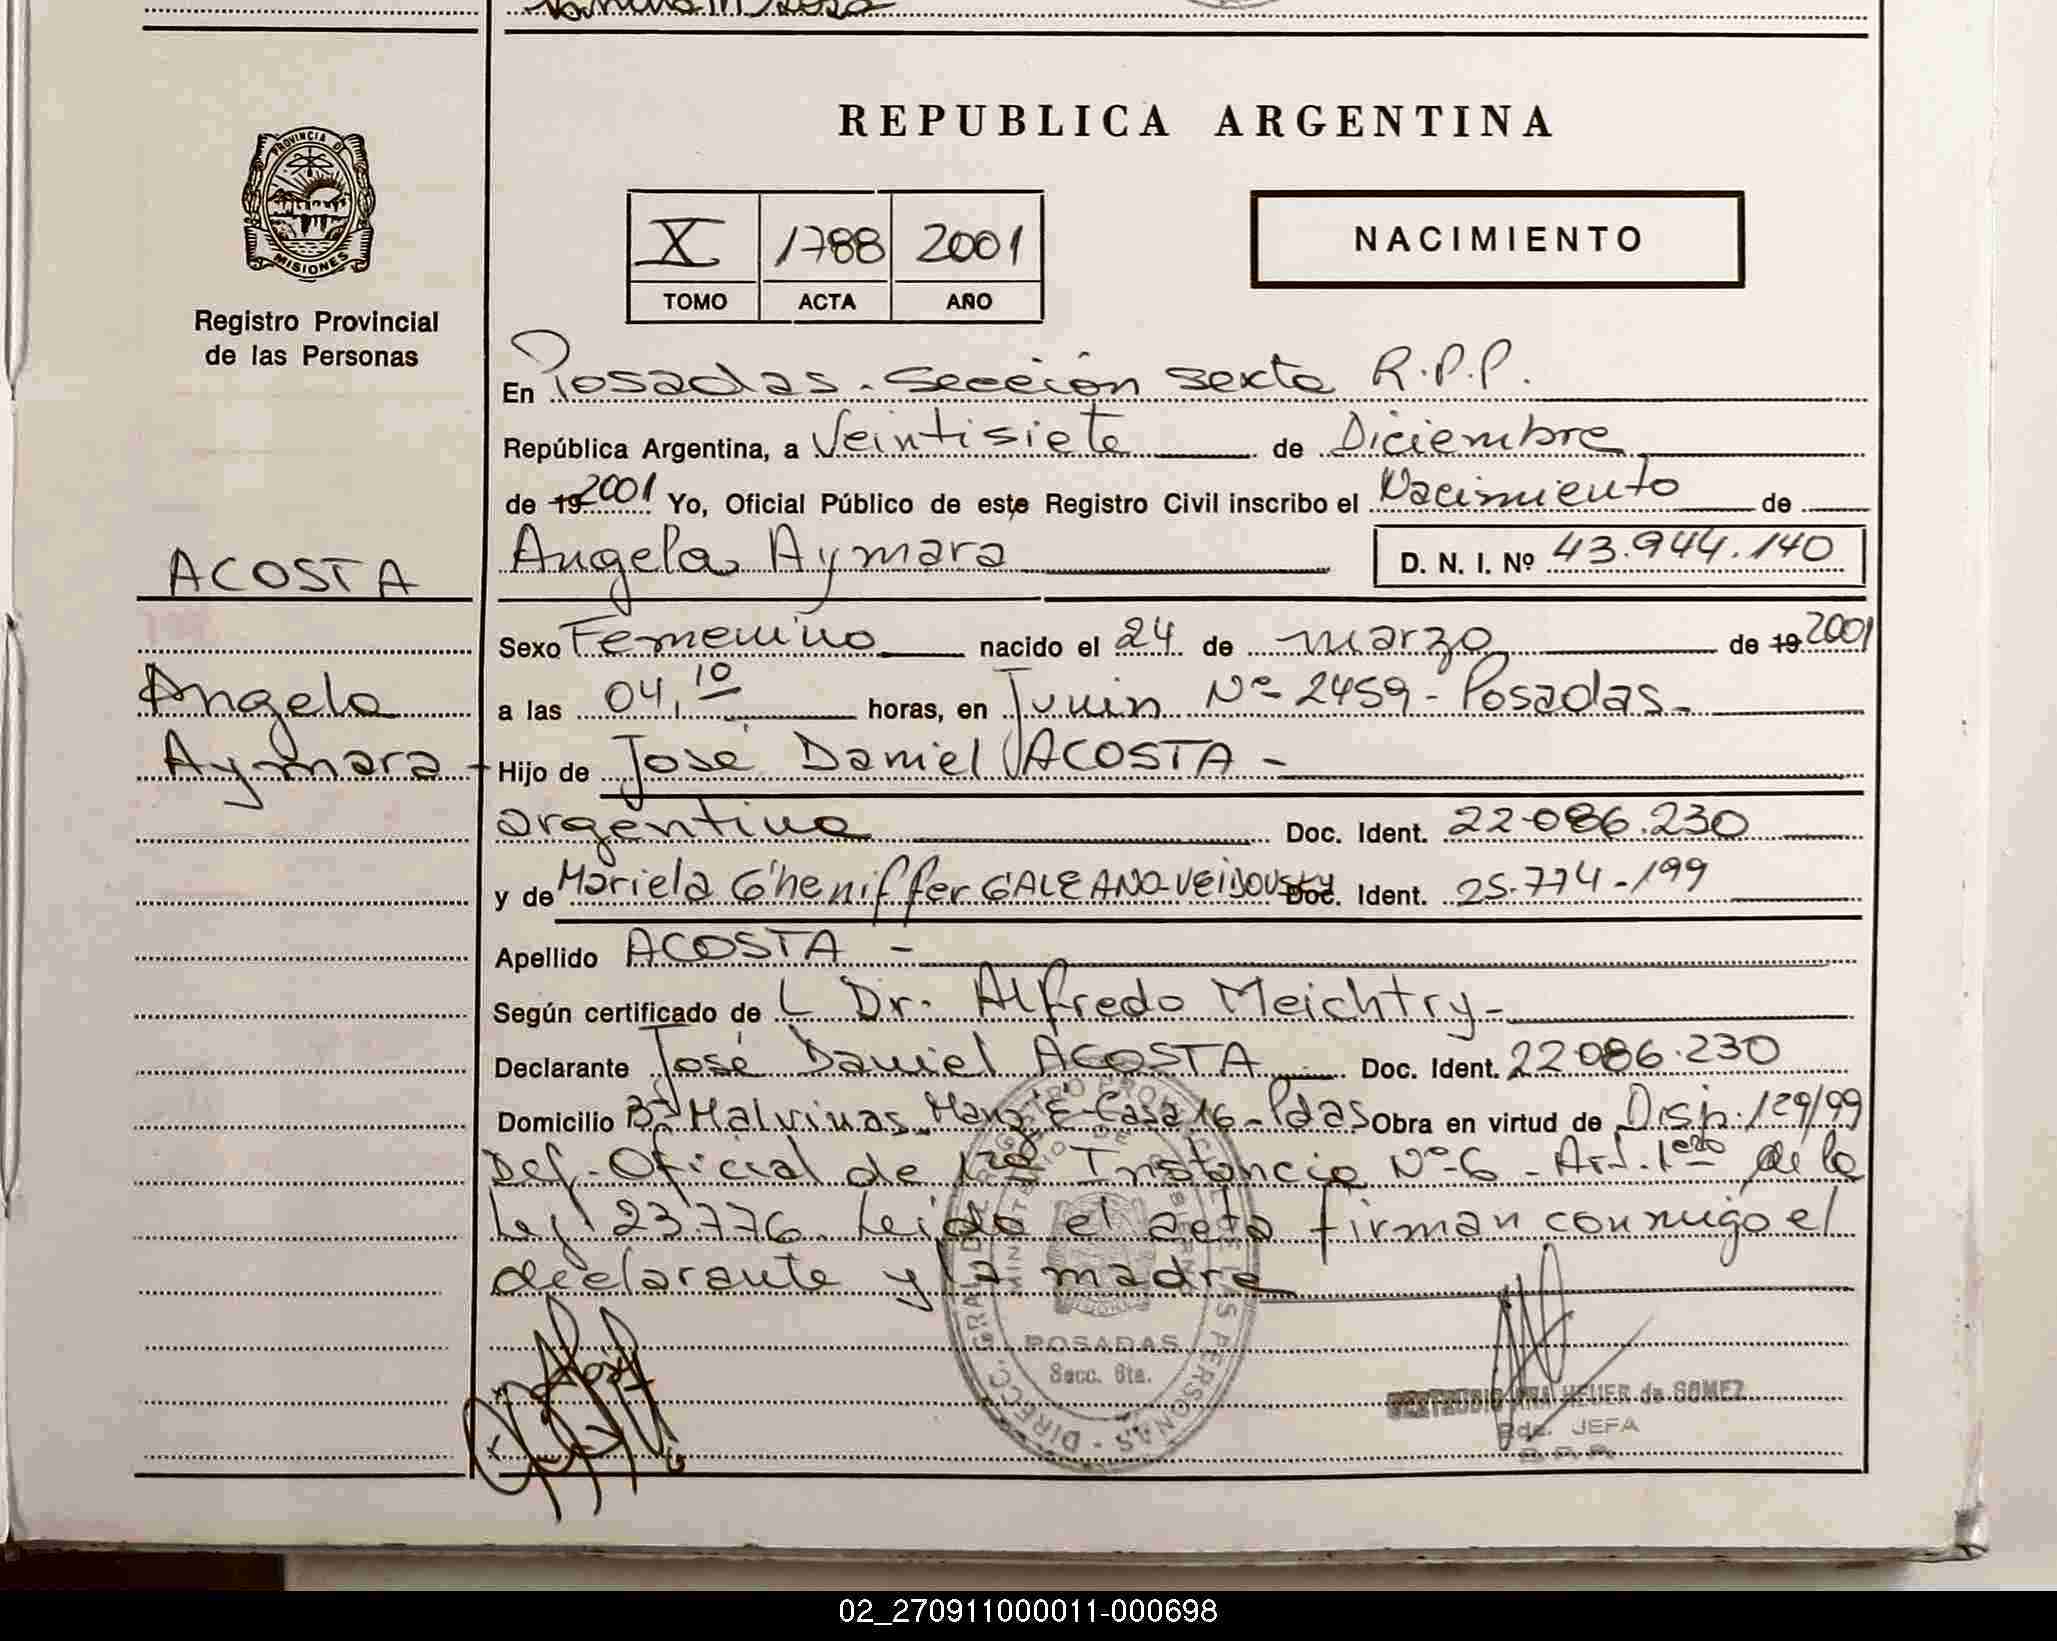 REPUBLICA ARGENTINA
PROVINCIA DE
MISIONES
Registro Provincial
de las Personas
X 1788 2001
TOMO ACTA AÑO
NACIMIENTO
En Posadas - Sección sexta R.P.P.
República Argentina, a Veintisiete de Diciembre
de 19 2001 Yo, Oficial Público de este Registro Civil inscribo el Nacimiento de
ACOSTA
Angela Aymara
D. N. I. Nº 43.944.140
Sexo Femenino nacido el 24 de marzo de 19 2001
Angela
a las 04,10 horas, en Junin Nº 2459 - Posadas -
Aymara -
Hijo de José Daniel ACOSTA -
argentina Doc. Ident. 22.086.230
y de Mariela G'heniffer GALEANO Doc. Ident. 25.774.199
Apellido ACOSTA -
Según certificado de L Dr. Alfredo Meichtry -
Declarante José Daniel ACOSTA Doc. Ident. 22.086.230
Domicilio Bº Malvinas Manz E - Casa 16 - Pdas Obra en virtud de Disp. 129/99
Def. Oficial de 1ra Instancia Nº 6 - Art. 1ero de la
Ley 23.776. Leida el acta firman conmigo el
declarante y la madre
MINISTERIO DE GOBIERNO
POSADAS
Secc. 6ta.
HEUER de GOMEZ
JEFA
02_270911000011-000698